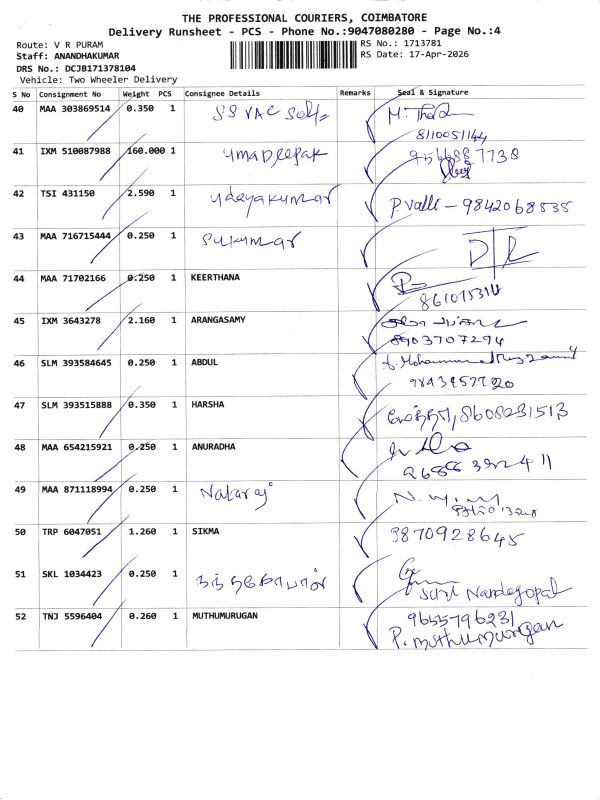 THE PROFESSIONAL COURIERS, COIMBATORE
Delivery Runsheet - PCS - Phone No.:9047080280 - Page No.:4
Route: V R PURAM
RS No.: 1713781
Staff: ANANDHAKUMAR
RS Date: 17-Apr-2026
DRS No.: DCJB171378104
Vehicle: Two Wheeler Delivery
S No Consignment No Weight PCS Consignee Details Remarks Seal & Signature
40 MAA 303869514 0.350 1 SS VAC
8110051144
41 IXM 510087988 160.000 1 umadeepak
9566887738
42 TSI 431150 2.590 1 udayakumar P. Valli - 9842068535
43 MAA 716715444 0.250 1 Sukumar
44 MAA 71702166 0.250 1 KEERTHANA
45 IXM 3643278 2.160 1 ARANGASAMY
8903707294
46 SLM 393584645 0.250 1 ABDUL
47 SLM 393515888 0.350 1 HARSHA 8608231513
48 MAA 654215921 0.250 1 ANURADHA
49 MAA 871118994 0.250 1 Nataraj
50 TRP 6047051 1.260 1 SIKMA 9870928645
51 SKL 1034423 0.250 1 நந்தகோபால்
Nandagopal
52 TNJ 5596404 0.260 1 MUTHUMURUGAN 9655796231
P. muthumurugan